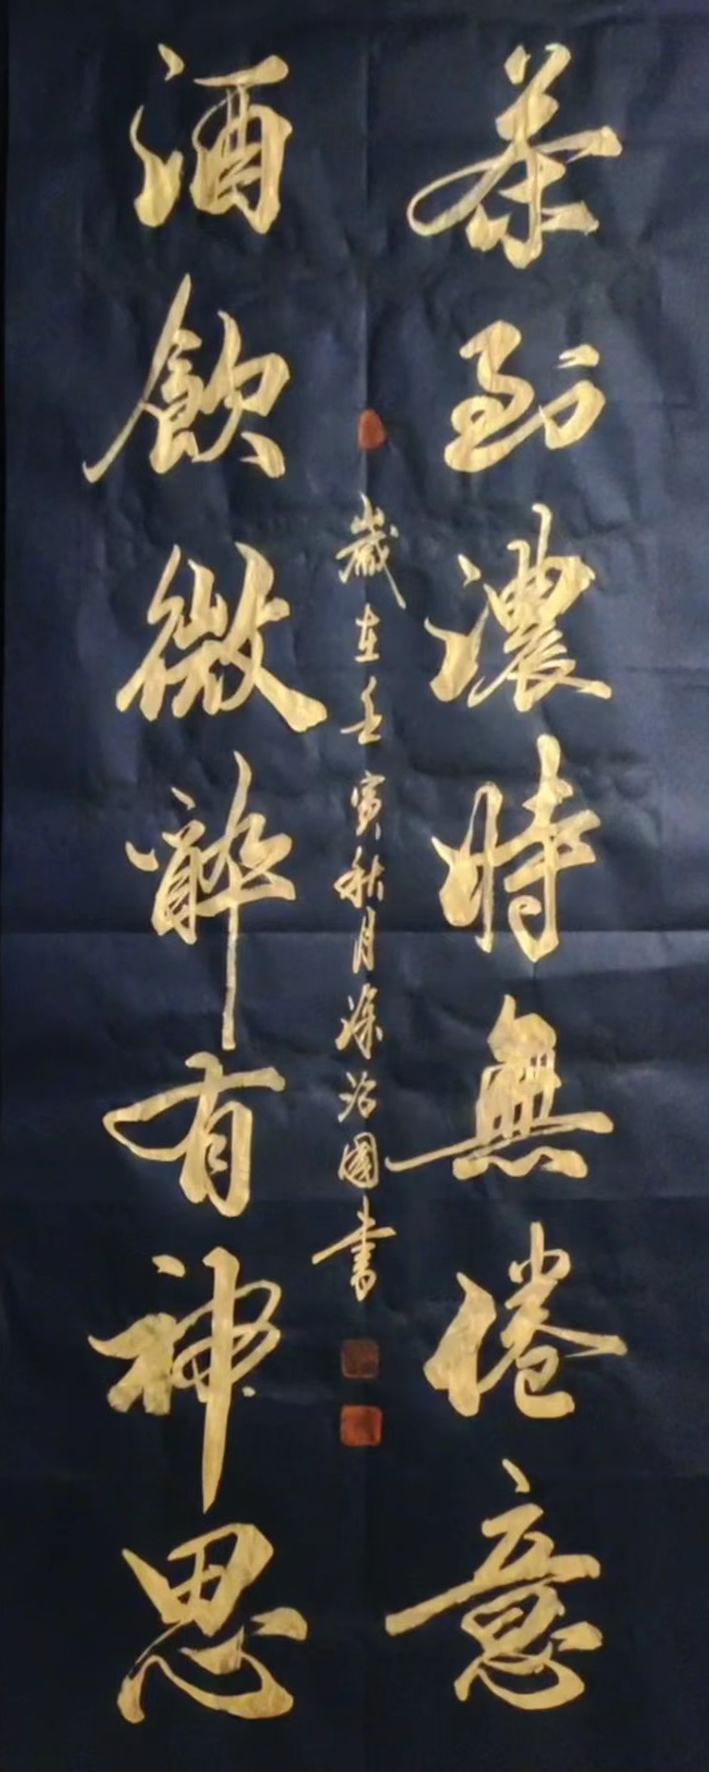 茶到濃時無倦意
酒飲微醉有神思
歲在壬寅秋月涂治國書